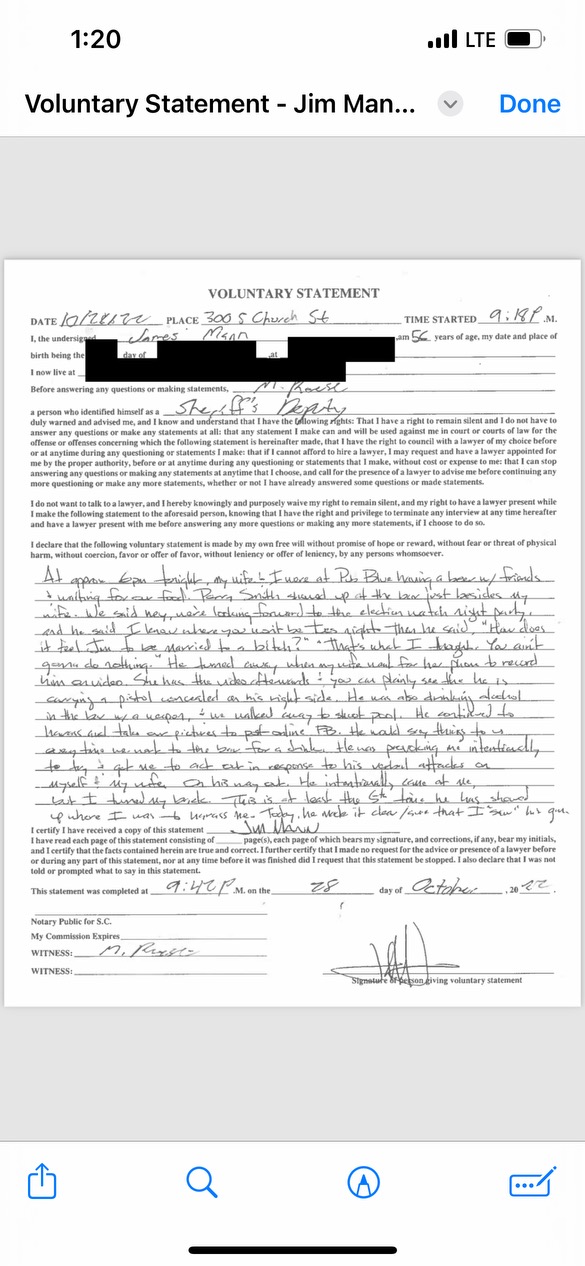 1:20 LTE
Voluntary Statement - Jim Man... Done
VOLUNTARY STATEMENT
DATE 10/28/22 PLACE 300 S Church St TIME STARTED 9:18 P.M.
I, the undersigned James Mann am 56 years of age, my date and place of
birth being the day of at
I now live at
Before answering any questions or making statements, M.
a person who identified himself as a Sheriff's Deputy
duly warned and advised me, and I know and understand that I have the following rights: That I have a right to remain silent and I do not have to
answer any questions or make any statements at all: that any statement I make can and will be used against me in court or courts of law for the
offense or offenses concerning which the following statement is hereinafter made, that I have the right to council with a lawyer of my choice before
or at anytime during questioning or statements I make: that if I cannot afford to hire a lawyer, I may request and have a lawyer appointed for
me by the proper authority, before or at anytime during questioning or statements that I make, without cost or expense to me: that I can stop
answering any questions or making any statements at anytime that I choose, and call for the presence of a lawyer to advise me before continuing any
more questioning or make any more statements, whether or not I have already answered some questions or made statements.
I do not want to talk to a lawyer, and I hereby knowingly and purposely waive my right to remain silent, and my right to have a lawyer present while
I make the following statement to the aforesaid person, knowing that I have the right and privilege to terminate any interview at any time hereafter
and have a lawyer present with me before answering any more questions or making any more statements, if I choose to do so.
I declare that the following voluntary statement is made by my own free will without promise of hope or reward, without fear or threat of physical
harm, without coercion, favor or offer of favor, without leniency or offer of leniency, by any persons whomsoever.
At approx 6pm tonight, my wife & I were at Pub Blue having a beer w/ friends
& waiting for our food. Perry Smith showed up at the bar just besides my
wife. We said hey, we're looking forward to the election watch night party,
and he said I know where you won't be Tues night. Then he said, "How does
it feel Jim to be married to a bitch?" "That's what I thought. You ain't
gonna do nothing." He turned away when my wife went for her phone to record
him on video. She has the video afterwards & you can plainly see that he is
carrying a pistol concealed on his right side. He was also drinking alcohol
in the bar w/ a weapon, & we walked away to shoot pool. He continued to
harass and take our pictures to post online FB. He would say things to us
every time we went to the bar for a drink. He was provoking me intentionally
to try & get me to act out in response to his verbal attacks on
myself & my wife. On his way out. He intentionally came at me,
but I turned my back. This is at least the 5th time he has showed
up where I was to harass me. Today, he made it clear /sure that I "saw" his gun.
I certify I have received a copy of this statement Jim Mann
I have read each page of this statement consisting of page(s), each page of which bears my signature, and corrections, if any, bear my initials,
and I certify that the facts contained herein are true and correct. I further certify that I made no request for the advice or presence of a lawyer before
or during any part of this statement, nor at any time before it was finished did I request that this statement be stopped. I also declare that I was not
told or prompted what to say in this statement.
This statement was completed at 9:42 P.M. on the 28 day of October, 2022.
Notary Public for S.C.
My Commission Expires
WITNESS: M.
WITNESS:
Signature of person giving voluntary statement